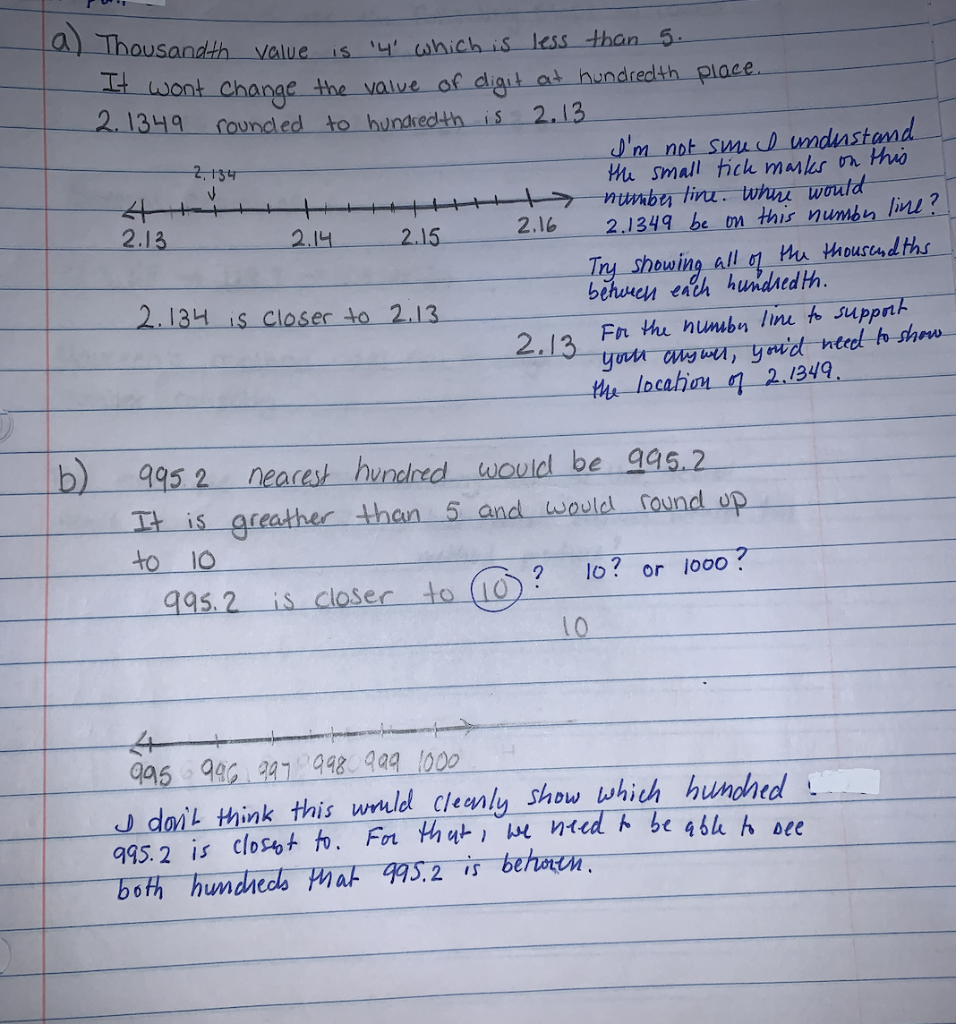 a) Thousandth value is '4' which is less than 5.
It wont change the value of digit at hundredth place.
2.1349 rounded to hundredth is 2.13
2.134
2.13 2.14 2.15 2.16
I'm not sure I understand
the small tick marks on this
number line. Where would
2.1349 be on this number line?
Try showing all of the thousandths
between each hundredth.
2.134 is closer to 2.13
2.13
For the number line to support
your answer, you'd need to show
the location of 2.1349.
b) 995.2 nearest hundred would be 995.2
It is greather than 5 and would round up
to 10
995.2 is closer to 10 ? 10? or 1000?
10
995 996 997 998 999 1000
I don't think this would clearly show which hundred
995.2 is closest to. For that, we need to be able to see
both hundreds that 995.2 is between.